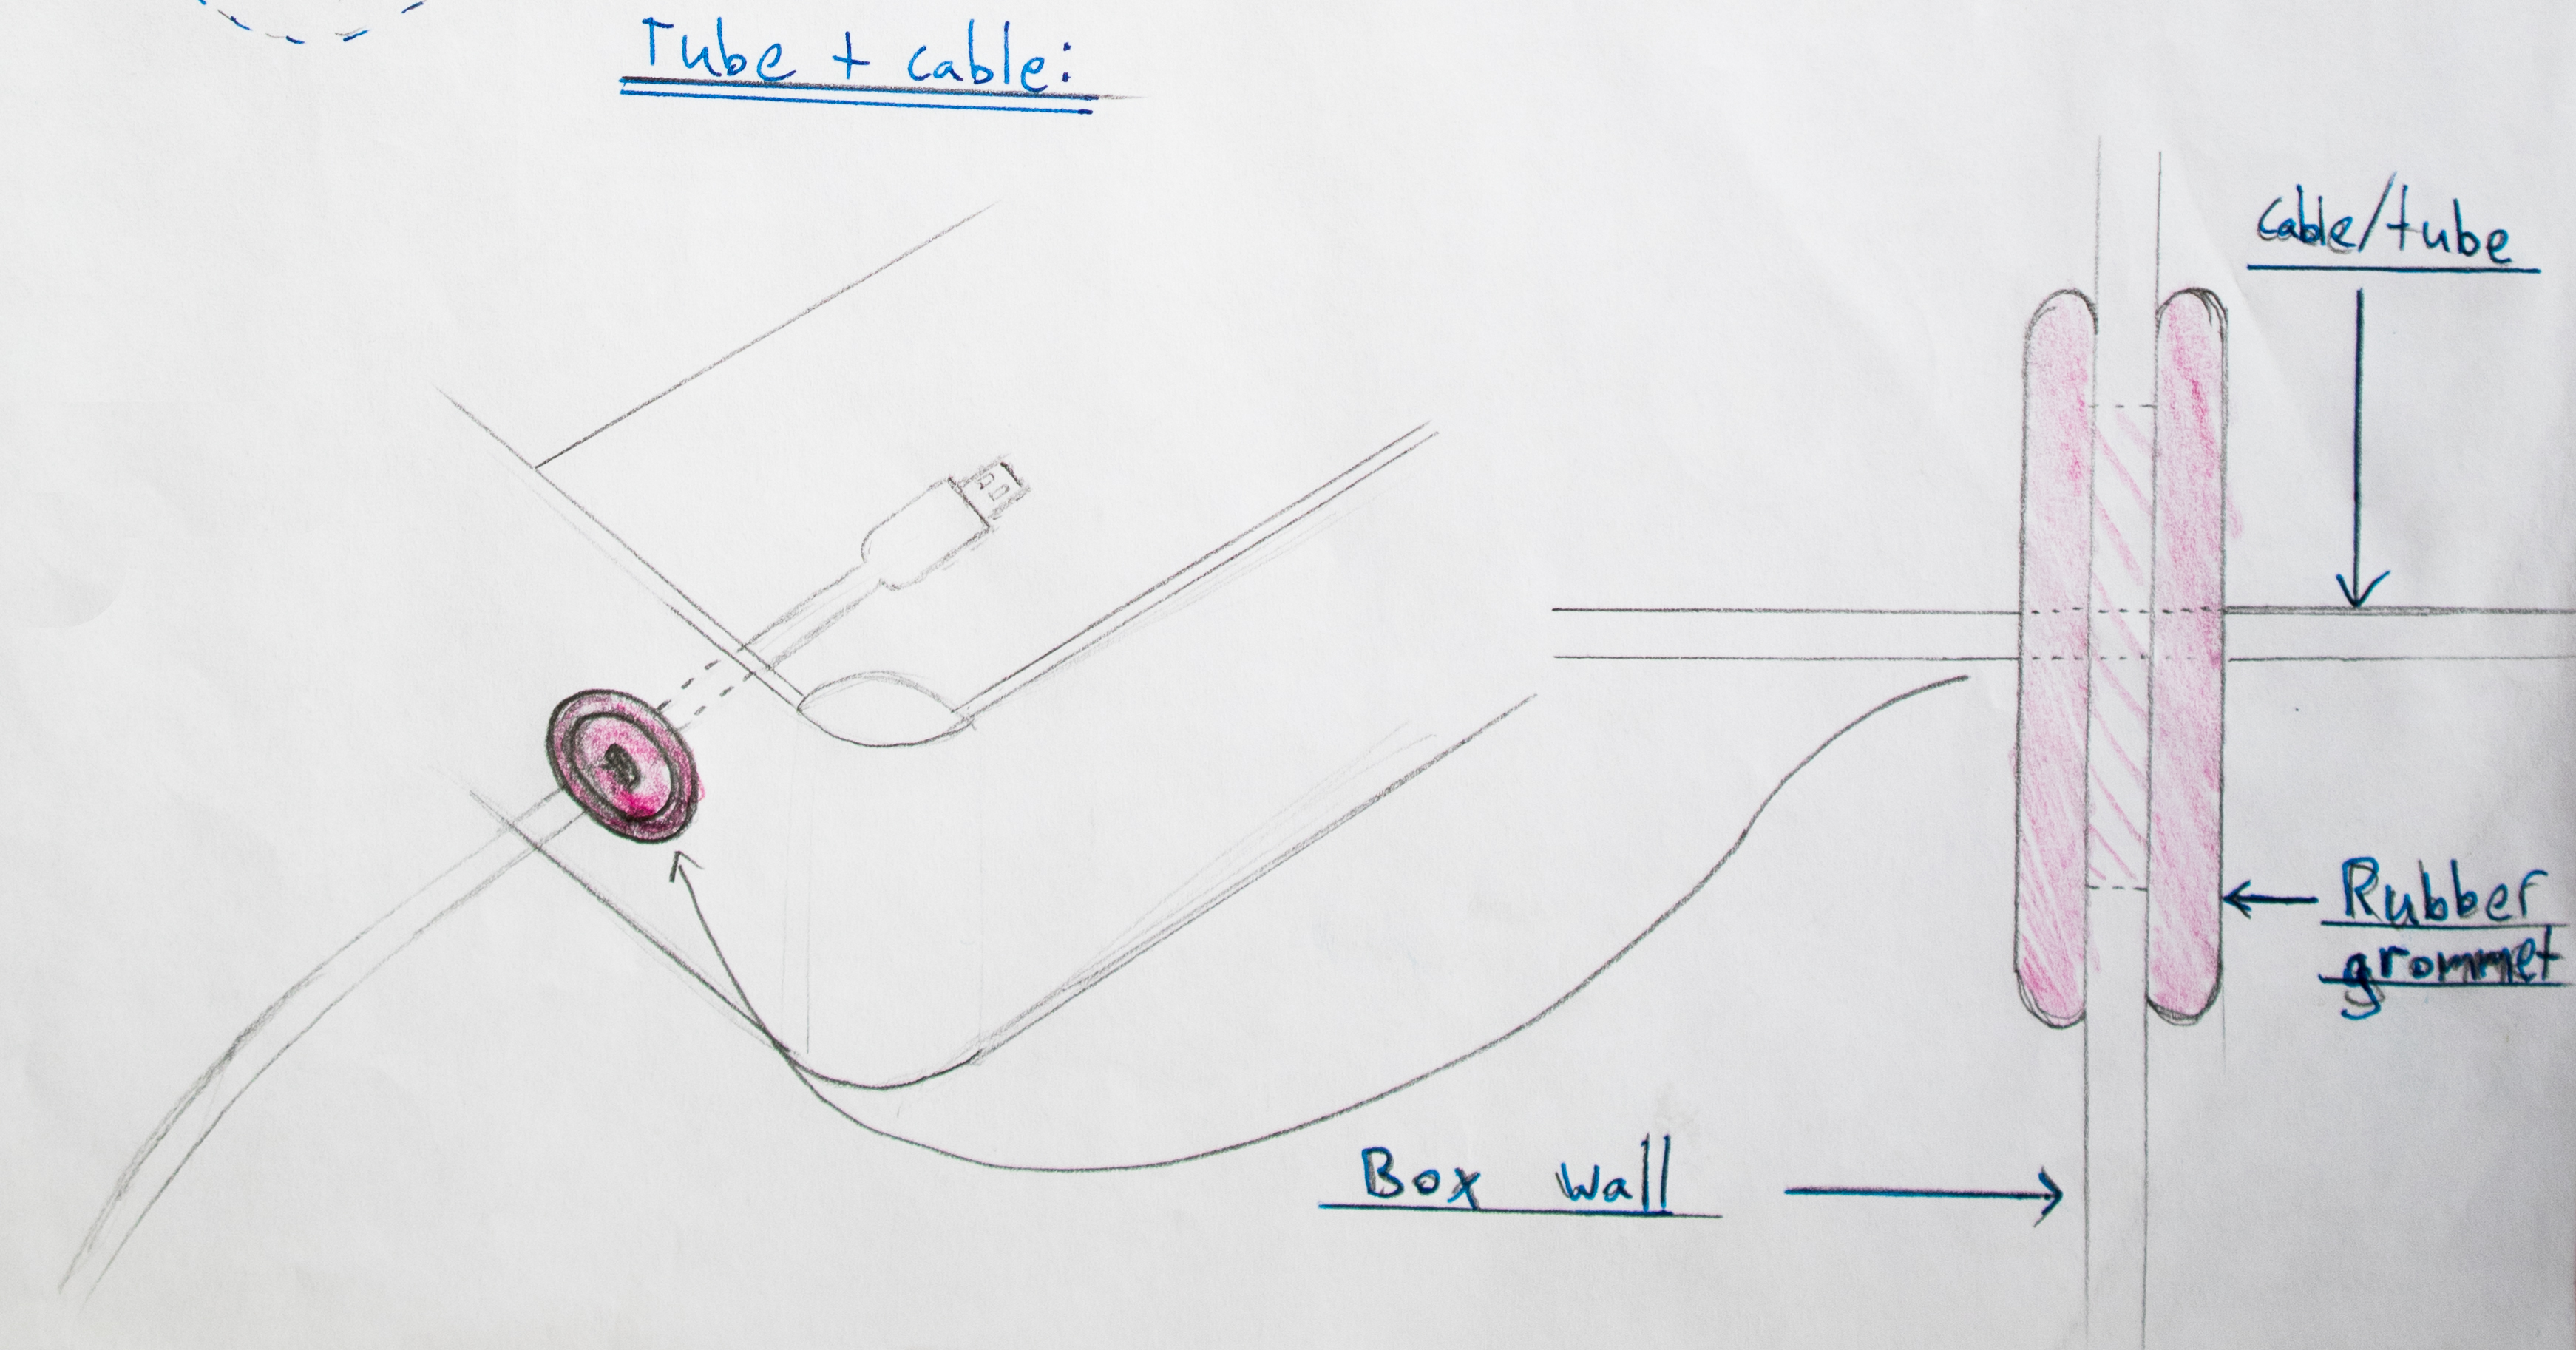 Tube + cable:
Cable/tube
Rubber
grommet
Box wall